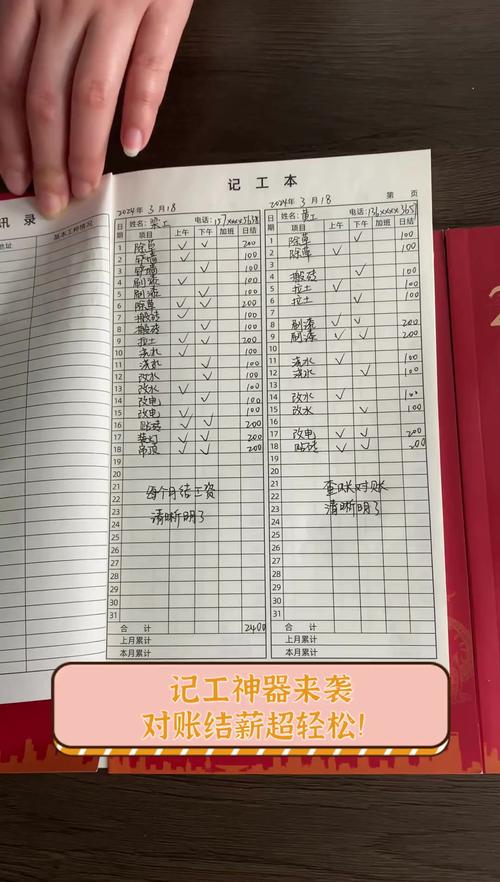 讯 录
地址
基本工种情况
记 工 本
2024年 3 月 18
姓名: 梁工 电话: 157xxxx3658
日期 项目 上午 下午 加班 日结
1 除草 ✓ ✓ 200
2 铲墙 ✓ 100
3 铲墙 ✓ 100
4 刷漆 ✓ 100
5 刷漆 ✓ 100
6 除草 ✓ ✓ 200
7 搬砖 ✓ 100
8 搬砖 ✓ 100
9 拉土 ✓ ✓ 200
10 浇水 ✓ 100
11 浇水 ✓ 100
12 改水 ✓ 100
13 改水 ✓ 100
14 改电 ✓ 100
15 改电 ✓ 100
16 贴砖 ✓ ✓ 200
17 装灯 ✓ ✓ 200
18 吊顶 ✓ ✓ 200
19
20
21
22 每个月结工资
23 清晰明了
24
25
26
27
28
29
30
31
合 计 2400
上月累计
本月累计
2024年 3 月 18 第 页
姓名: 工 电话: 136xxxx3657
日期 项目 上午 下午 加班 日结
1 除草 ✓ 100
2 除草 ✓ 100
3
4 搬砖 ✓ 100
5 拉土 ✓ 100
6 拉土 ✓ 100
7
8 刷漆 ✓ ✓ 200
9 刷漆 ✓ ✓ 200
10
11 浇水 ✓ 100
12 浇水 ✓ 100
13
14 改水 ✓ 100
15 改水 ✓ 100
16
17 改电 ✓ ✓ 200
18 贴砖 ✓ ✓ 200
19
20
21 查账对账
22
23 清晰明了
24
25
26
27
28
29
30
31
合 计
上月累计
本月累计
2
记工神器来袭
对账结薪超轻松!